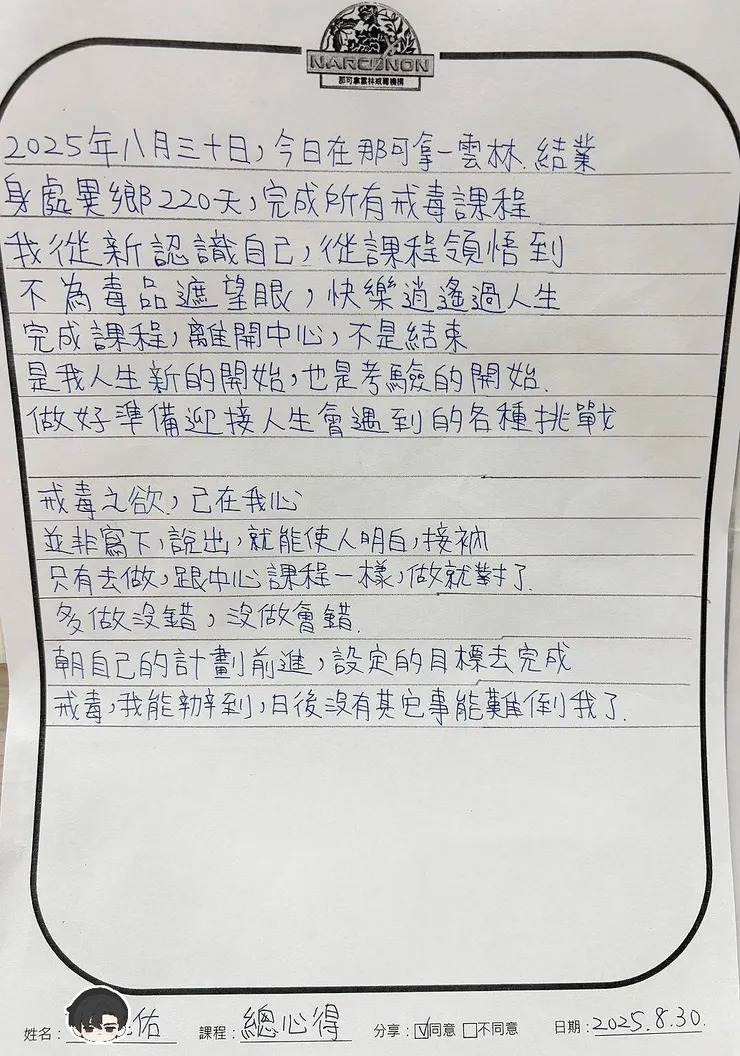 NARCONON
那可拿雲林戒毒機構
2025年八月三十日,今日在那可拿-雲林.結業
身處異鄉220天,完成所有戒毒課程
我從新認識自己,從課程領悟到
不為毒品遮望眼,快樂逍遙過人生
完成課程,離開中心,不是結束
是我人生新的開始,也是考驗的開始.
做好準備迎接人生會遇到的各種挑戰
戒毒之欲,己在我心
並非寫下,說出,就能使人明白,接衲
只有去做,跟中心課程一樣,做就對了.
多做沒錯,沒做會錯.
朝自己的計劃前進,設定的目標去完成
戒毒,我能辦到,日後沒有其它事能難倒我了.
姓名: 佑 課程: 總心得 分享: ☑同意 □不同意 日期: 2025.8.30.